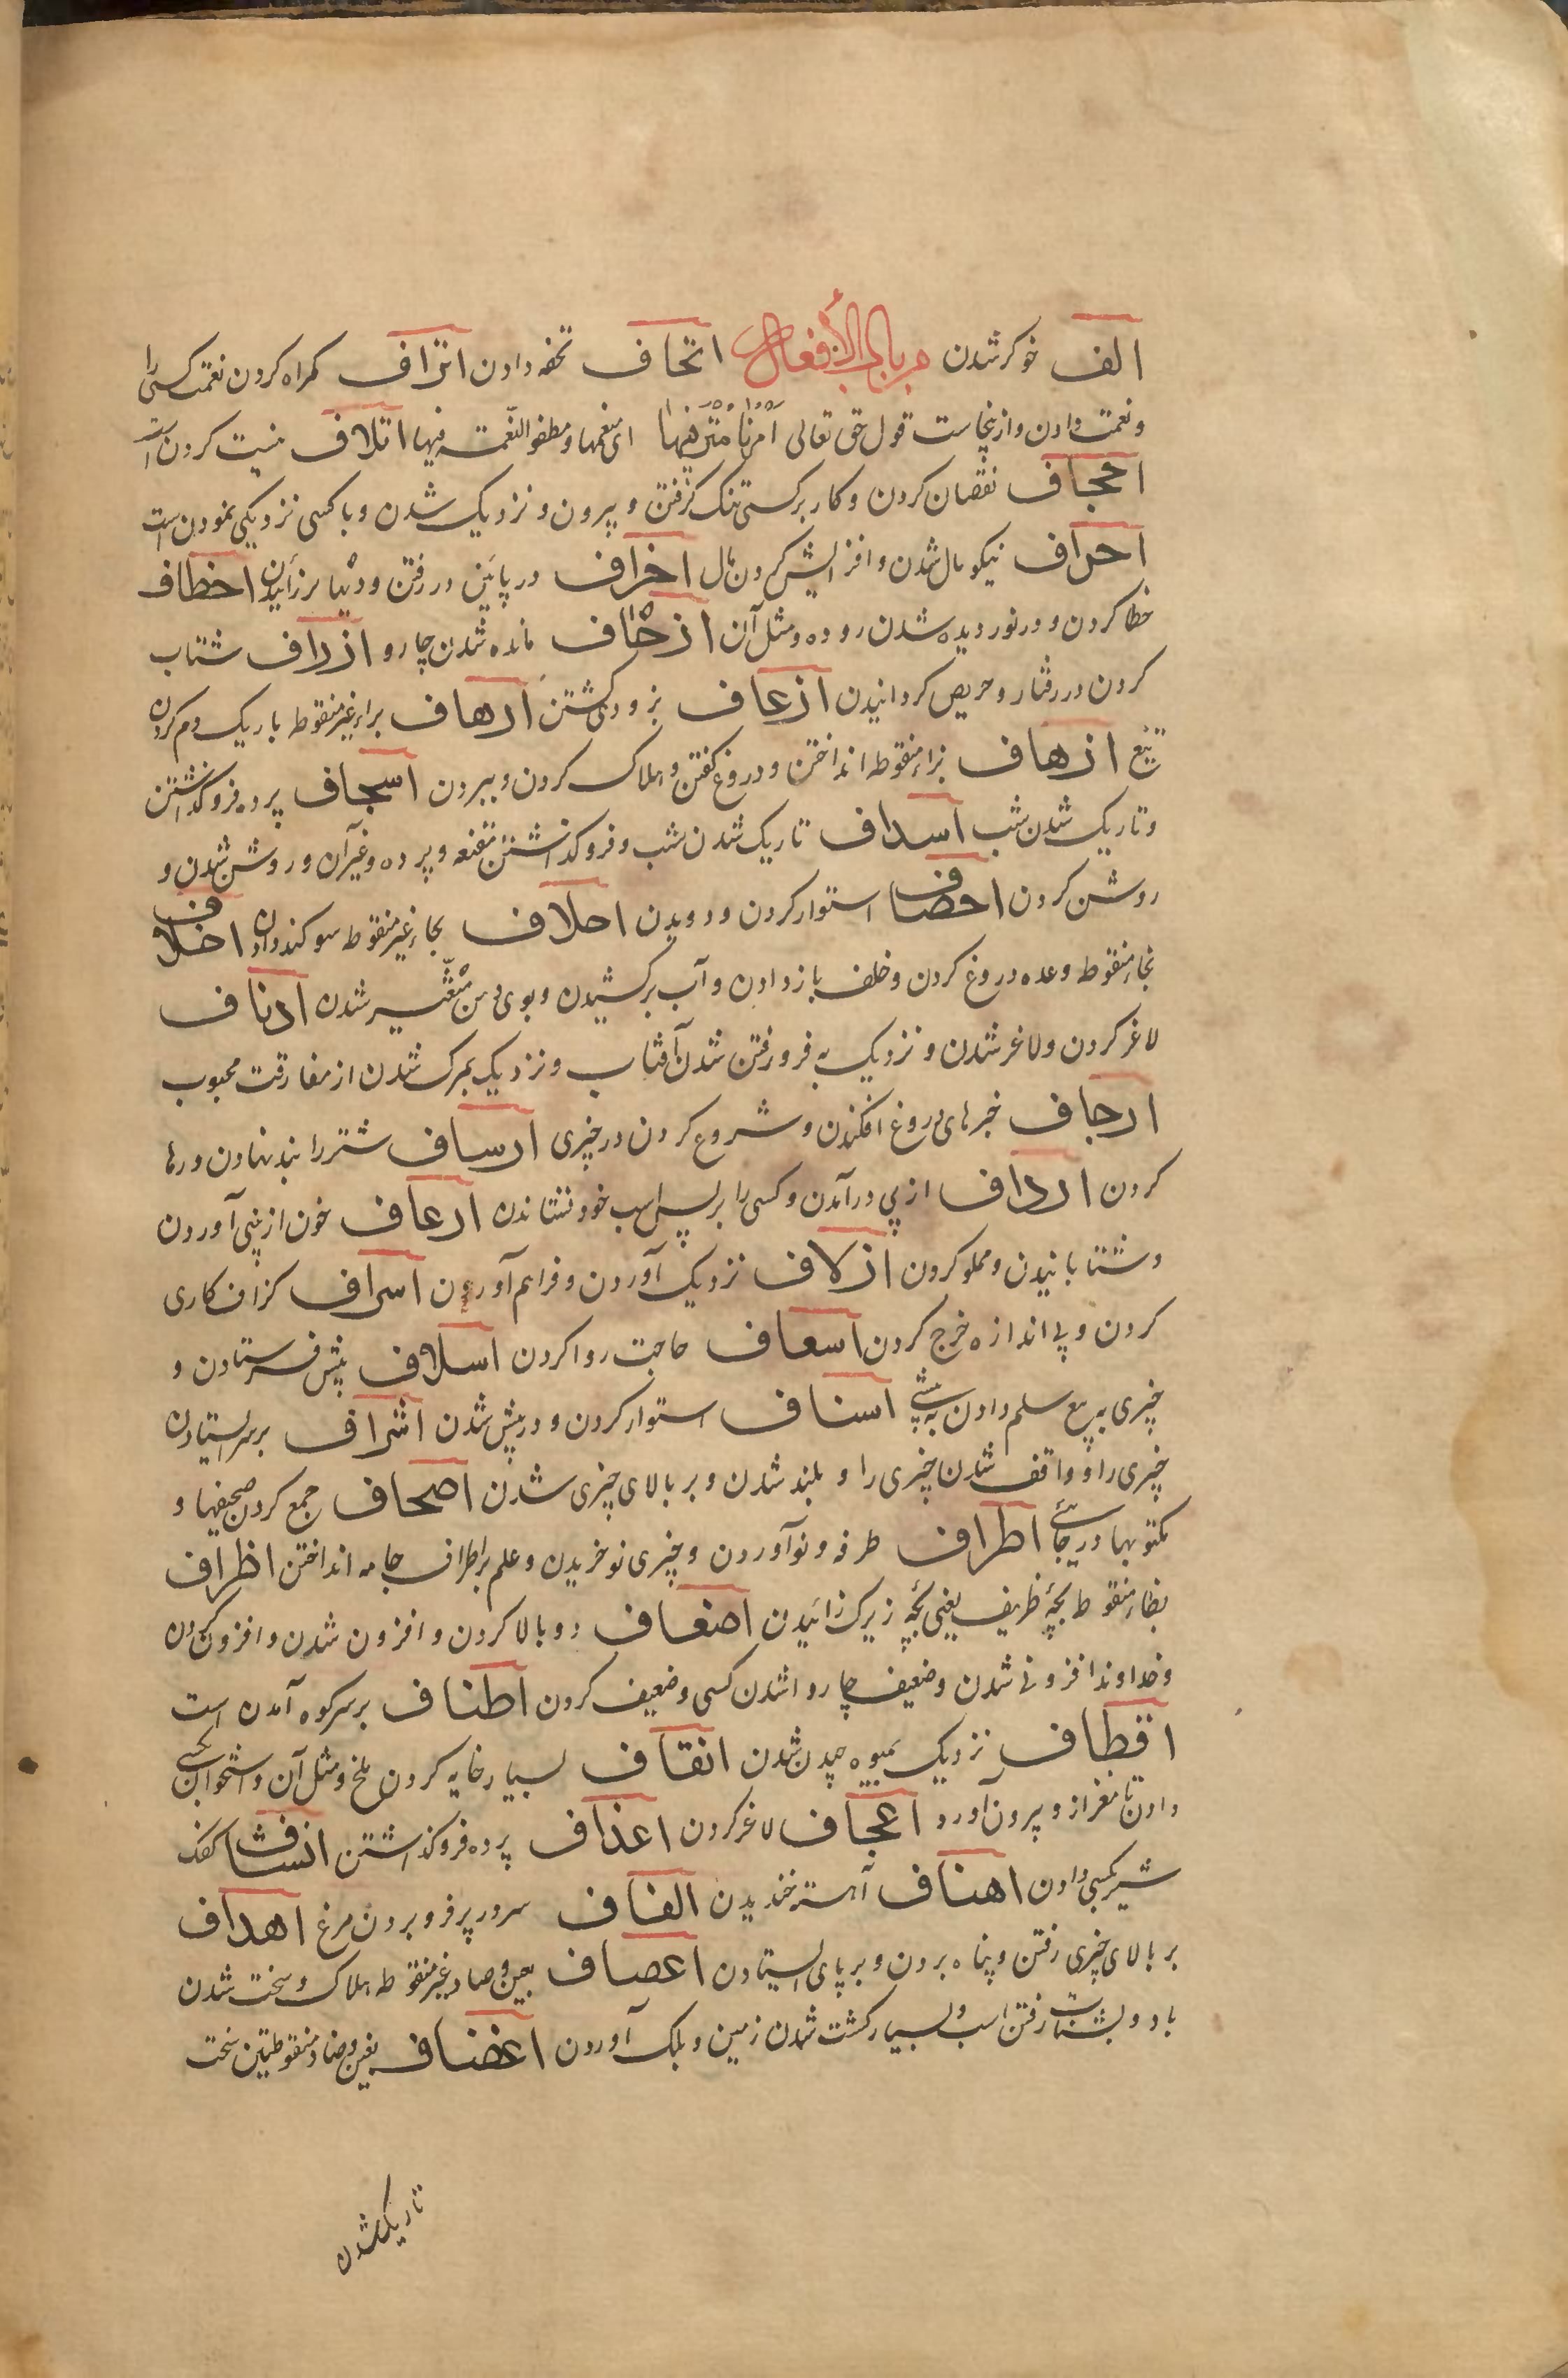 الف خو کر شدن من باب الأفعال اتحاف تحفه دادن اتراف کمراه کردن نعمت کسی را
ونعمت دادن و از ینجاست قول حق تعالی اَمَرْنَا مُتْرَفِیهَا ای منعمها و مطغو النّعمت فیها اتلاف نیست کردن است
اجحاف نقصان کردن و کار بر کسی تنک کرفتن و بیرون و نزدیک شدن و با کسی نزدیکی نمودن است
احراف نیکو مال شدن و افزایش کردن مال اخراف در پائیز در رفتن و دنها بر زائیدن اخطاف
خطا کردن و در نوردیده شدن روده و مثل آن ازحاف مانده شدن چاروا ازراف شتاب
کردن در رفتار و حریص کردانیدن ازعاف بزودی کشتن ارهاف براء غیر منقوطه باریک دم کردن
تیغ ازهاف بزاء منقوطه انداختن و دروغ کفتن و هلاک کردن و ببردن اسجاف پرده فرو کذاشتن
و تاریک شدن شب اسداف تاریک شدن شب و فرو کذاشتن مقنعه و پرده و غیر آن و روشن شدن و
روشن کردن احصاف استوار کردن و دویدن احلاف بحاء غیر منقوطه سوکند دادن اخلاف
بخاء منقوطه وعده دروغ کردن و خلف باز دادن و آب برکشیدن و بوی دهن متغیّر شدن ادناف
لاغر کردن و لاغر شدن و نزدیک به فرو رفتن شدن آفتاب و نزدیک بمرک شدن از مفارقت محبوب
ارجاف خبرهای دروغ افکندن و شروع کردن در چیزی ارساف شتر را بند نهادن و رها
کردن ارداف از پی درآمدن و کسی را بر پس اسب خود نشاندن ارعاف خون از بینی آوردن
و شتابانیدن و مملو کردن ازلاف نزدیک آوردن و فراهم آوردن اسراف کزاف کاری
کردن و بی اندازه خرج کردن اسعاف حاجت روا کردن اسلاف پیش فرستادن و
چیزی به بیع سلم دادن به پیشی اسناف استوار کردن و در پیش شدن اشراف بر سر ایستادن
چیزی را و واقف شدن چیزی را و بلند شدن و بر بالای چیزی شدن اصحاف جمع کردن صحیفها و
مکتوبها در جائے اطراف طرفه و نو آوردن و چیزی نو خریدن و علم بر اطراف جامه انداختن اظراف
بظاء منقوطه بچهٔ ظریف یعنی بچهٔ زیرک زائیدن اضعاف دو بالا کردن و افزون شدن و افزون کردن
و خداوند افزونی شدن و ضعیف چاروا شدن کسی و ضعیف کردن اطناف بر سر کوه آمدن است
اقطاف نزدیک بمیوه چیدن شدن انقاف بسیار خایه کردن ملخ و مثل آن و استخوان بکسی
دادن تا مغز از و بیرون آورد اعجاف لاغر کردن اغداف پرده فرو کذاشتن انشاف کفک
شیر بکسی دادن اهناف آهسته خندیدن الفاف سر در پر فرو بردن مرغ اهداف
بر بالای چیزی رفتن و پناه بردن و بر پای ایستادن اعصاف بعین و صاد غیر منقوطه هلاک و سخت شدن
باد و بشتاب رفتن اسب و بسیار کشت شدن زمین و بلک آوردن اغضاف بغین و ضاد منقوطتین سخت
تاریک شدن